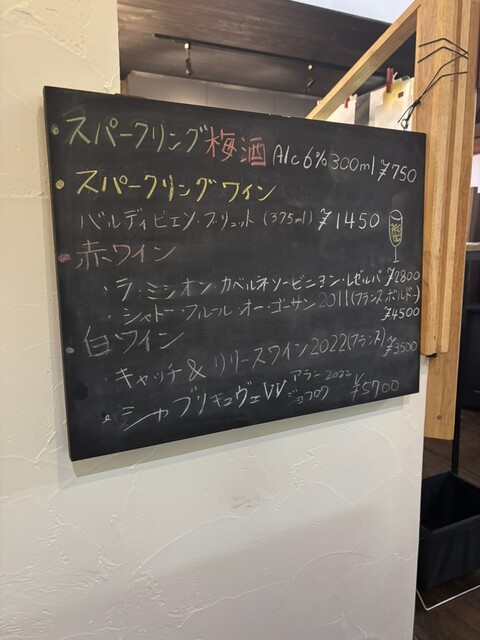 ・スパークリング梅酒 Alc 6% 300ml ¥750
・スパークリングワイン
バルディビエソ・ブリュット (375ml) ¥1450
・赤ワイン
・ラ・ミシオン・カベルネソービニヨン・レゼルバ ¥2800
・シャトー・フルール・オー・ゴーサン 2011(フランス ボルドー) ¥4500
・白ワイン
・キャッチ & リリースワイン 2022(フランス) ¥3500
・シャブリキュヴェVV アラン 2022 ジョフロワ ¥5700